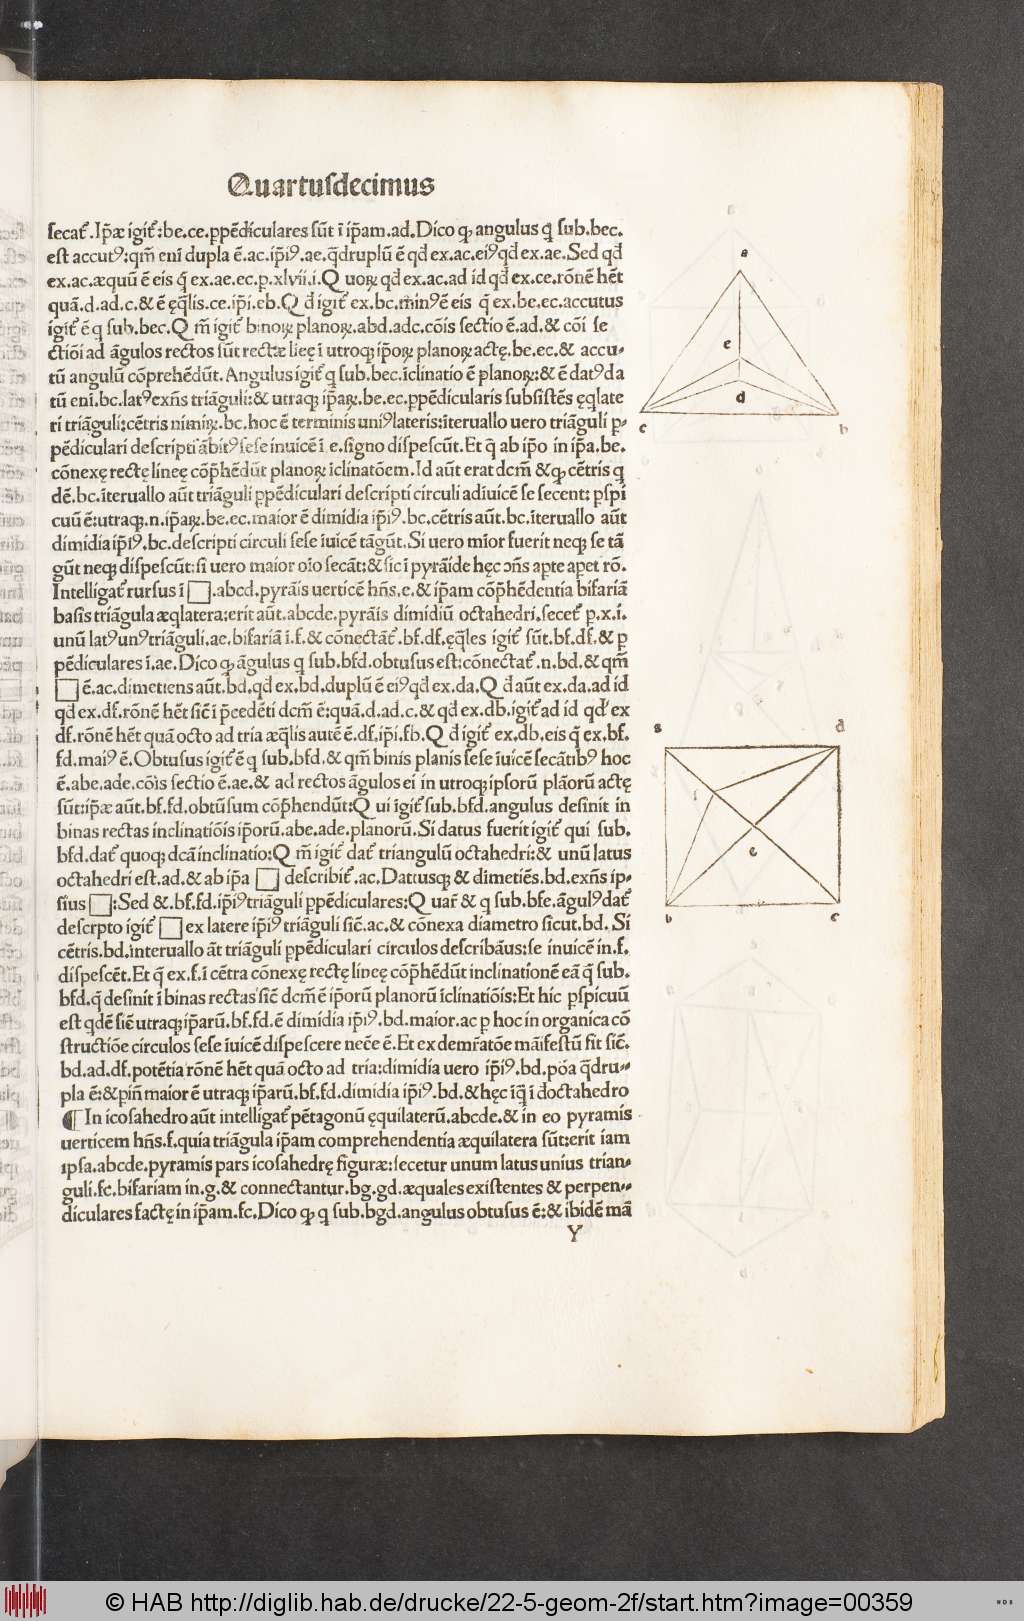 Quartusdecimus
secat᷒. Ip̄æ igit᷒:be.ce.ꝑpēdiculares sūt ī ip̄am.ad.Dico ꝙ angulus q̄ sub.bec.
est accutꝰ:qm̄ enī dupla ē.ac.ip̄iꝰ.ae.q̄druplū ē qd̄ ex.ac.eiꝰqd̄ ex.ae. Sed qd̄
ex.ac.æquū ē eis q̄ ex.ae.ec.p.xlvii.i.Q uoꝝ qd̄ ex.ac.ad id qd̄ ex.ce.rōnē hēt
quā.d.ad.c.& ē ęq̄lis.ce.ip̄i.eb.Q d̄ igit᷒ ex.bc.minꝰē eis q̄ ex.be.ec.accutus
igit᷒ ē q sub.bec.Q m̄ igit᷒ binoꝝ planoꝝ.abd.adc.cōis sectio ē.ad.& cōi se
ctiōi ad āgulos rectos sūt rectæ lieę ī utroqꝫ ip̄oꝝ planoꝝ actę.be.ec.& accu-
tū angulū cōprehēdūt.Angulus igit᷒ q sub.bec.īclinatio ē planoꝝ:& ē datꝰda
tū enī.bc.latꝰexn̄s triāguli:& utraqꝫ ip̄aꝝ.be.ec.ꝑpēdicularis subsistēs ęq̄late
ri triāguli:cētris nimiꝝ.bc.hoc ē terminis uniꝰlateris:īteruallo uero triāguli ꝑ-
pēdiculari descripti ābitꝰsese inuicē ī e.signo dispescūt.Et q̄ ab ip̄o in ip̄a.be.
cōnexę rectę lineę cōp̄hēdūt planoꝝ īclinatōem.Id aūt erat dcm̄ &ꝙ cētris q
dē.bc.īteruallo aūt triāguli ꝑpēdiculari descripti circuli adiuicē se secent: ꝑspi
cuū ē:utraqꝫ.n.ip̄aꝝ.be.ec.maior ē dimidia ip̄iꝰ.bc.cētris aūt.bc.īteruallo aūt
dimidia ip̄iꝰ.bc.descripti circuli sese īuicē tāgūt.Si uero mīor fuerit neqꝫ se tā
gūt neqꝫ dispescūt:si uero maior oīo secāt:& sic ī pyrāide hęc ↄn̄s aꝑte aꝑet rō.
Intelligat᷒ rursus ī □.abcd.pyrāis uerticē hn̄s.e.& ip̄am cōp̄hēdentia bifariā
basis triāgula æqlatera:erit aūt.abcde.pyrāis dimidiū octahedri.secet᷒ p.x.i.
unū latꝰunꝰtriāguli.ae.bifariā ī.f.& cōnectāt᷒.bf.df.ęq̄les igit᷒ sūt.bf.df.& ꝑ
pēdiculares ī.ae.Dico ꝙ āgulus q sub.bfd.obtusus est:cōnectat᷒.n.bd.& qm̄
□ ē.ac.dimetiens aūt.bd.qd̄ ex.bd.duplū ē eiꝰqd̄ ex.da.Q d̄ aūt ex.da.ad id
qd̄ ex.df.rōnē hēt sic̄ ī p̄cedēti dcm̄ ē:quā.d.ad.c.& qd̄ ex.db.igit᷒ ad id qd̄ ex
df.rōnē hēt quā octo ad tria æq̄lis autē ē.df.ip̄i.fb.Q d̄ igit᷒ ex.db.eis q̄ ex.bf.
fd.maiꝰ ē.Obtusus igit᷒ ē q sub.bfd.& qm̄ binis planis sese īuicē secātibꝰ hoc
ē.abe.ade.cōis sectio ē.ae.& ad rectos āgulos ei in utroqꝫ ipsorū plāorū actę
sūt:ip̄æ aūt.bf.fd.obtūsum cōp̄hendūt:Q ui igit᷒ sub.bfd.angulus desinit in
binas rectas inclinatiōis ip̄orū.abe.ade.planorū.Si datus fuerit igit᷒ qui sub.
bfd.dat᷒ quoqꝫ dcā inclinatio:Q m̄ igit᷒ dat᷒ triangulū octahedri:& unū latus
octahedri est.ad.& ab ip̄a □ describit᷒.ac.Datusqꝫ & dimetiēs.bd.exn̄s ip-
sius □:Sed &.bf.fd.ip̄iꝰtriāguli ꝑpēdiculares:Q uar̄ & q sub.bfe.āgulꝰdat᷒
descrpto igit᷒ □ ex latere ip̄iꝰ triāguli sic̄.ac.& cōnexa diametro sicut.bd. Si
cētris.bd.īnteruallo āt triāguli ꝑpēdiculari circulos describāus:se inuicē in.f.
dispescēt.Et q̄ ex.f.ī cētra cōnexę rectę lineę cōp̄hēdūt inclinationē eā q̄ sub.
bfd.q̄ desinit ī binas rectas sic̄ dcm̄ ē ip̄orū planorū īclinatiōis:Et hic ꝑspicuū
est qdē sic̄ utraqꝫ ip̄arū.bf.fd.ē dimidia ip̄iꝰ.bd.maior.ac ꝑ hoc in organica cō
structiōe circulos sese īuicē dispescere nec̄e ē.Et ex demr̄atōe māifestū fit sic̄.
bd.ad.df.potētia rōnē hēt quā octo ad tria:dimidia uero ip̄iꝰ.bd.pōa q̄dru-
pla ē:&ꝑin̄ maior ē utraqꝫ ip̄arū.bf.fd.dimidia ip̄iꝰ.bd.& hęc īq̄ ī d̄octahedro
¶In icosahedro aūt intelligat᷒ pētagonū ęquilaterū.abcde.& in eo pyramis
uerticem hn̄s.f.quia triāgula ip̄am comprehendentia æquilatera sūt:erit iam
ipsa.abcde.pyramis pars icosahedrę figuræ:secetur unum latus unius trian-
guli.fc.bifariam in.g.& connectantur.bg.gd.æquales existentes & perpen-
diculares factę in ip̄am.fc.Dico ꝙ q sub.bgd.angulus obtusus ē:& ibidē mā
Y
a
e
d
c b
a d
f
e
b c
© HAB http://diglib.hab.de/drucke/22-5-geom-2f/start.htm?image=00359